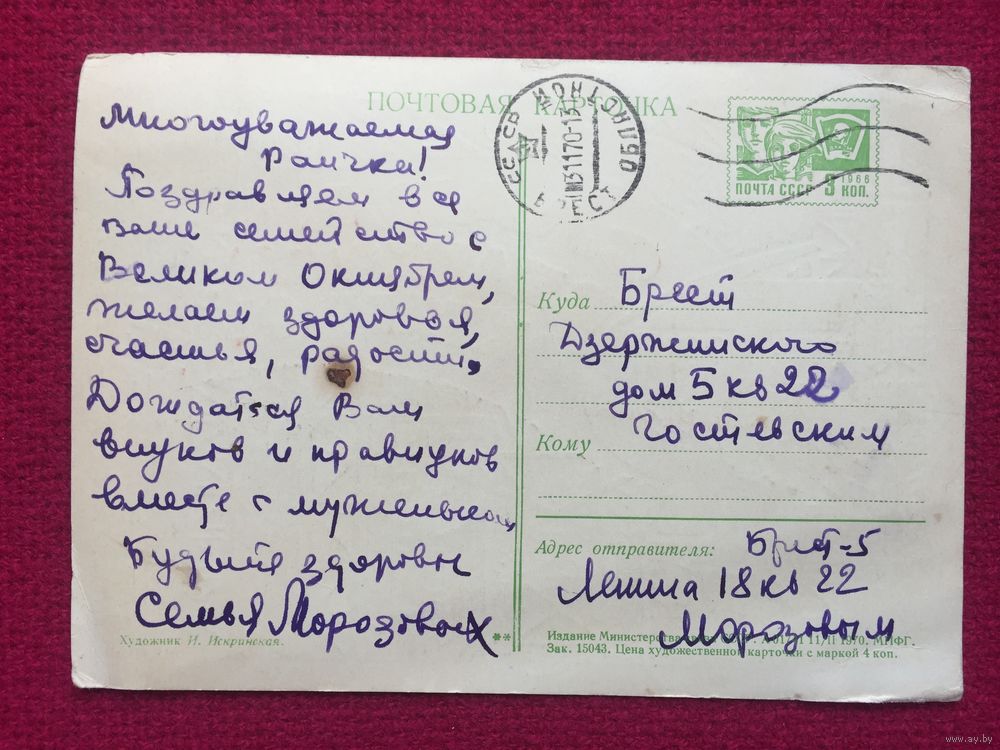 ПОЧТОВАЯ КАРТОЧКА
Многоуважаемая
Раичка!
Поздравляем все
ваше семейство с
Великим Октябрем,
желаем здоровья,
счастья, радости,
Дождаться Вам
внуков и правнуков
вместе с муженьком
Будьте здоровы
Семья Морозовых
Художник И. Искринская.
**
СССР БРЕСТ
311170-13
ПОЧТА СССР 3 КОП.
1966
Куда Брест
Дзержинского
дом 5 кв 22
Кому Гостевским
Адрес отправителя: Брест-5
Ленина 18 кв 22
Морозовым
Издание Министерства связи СССР. 11/II 1970. МПФГ.
Зак. 15043. Цена художественной карточки с маркой 4 коп.
www.ay.by